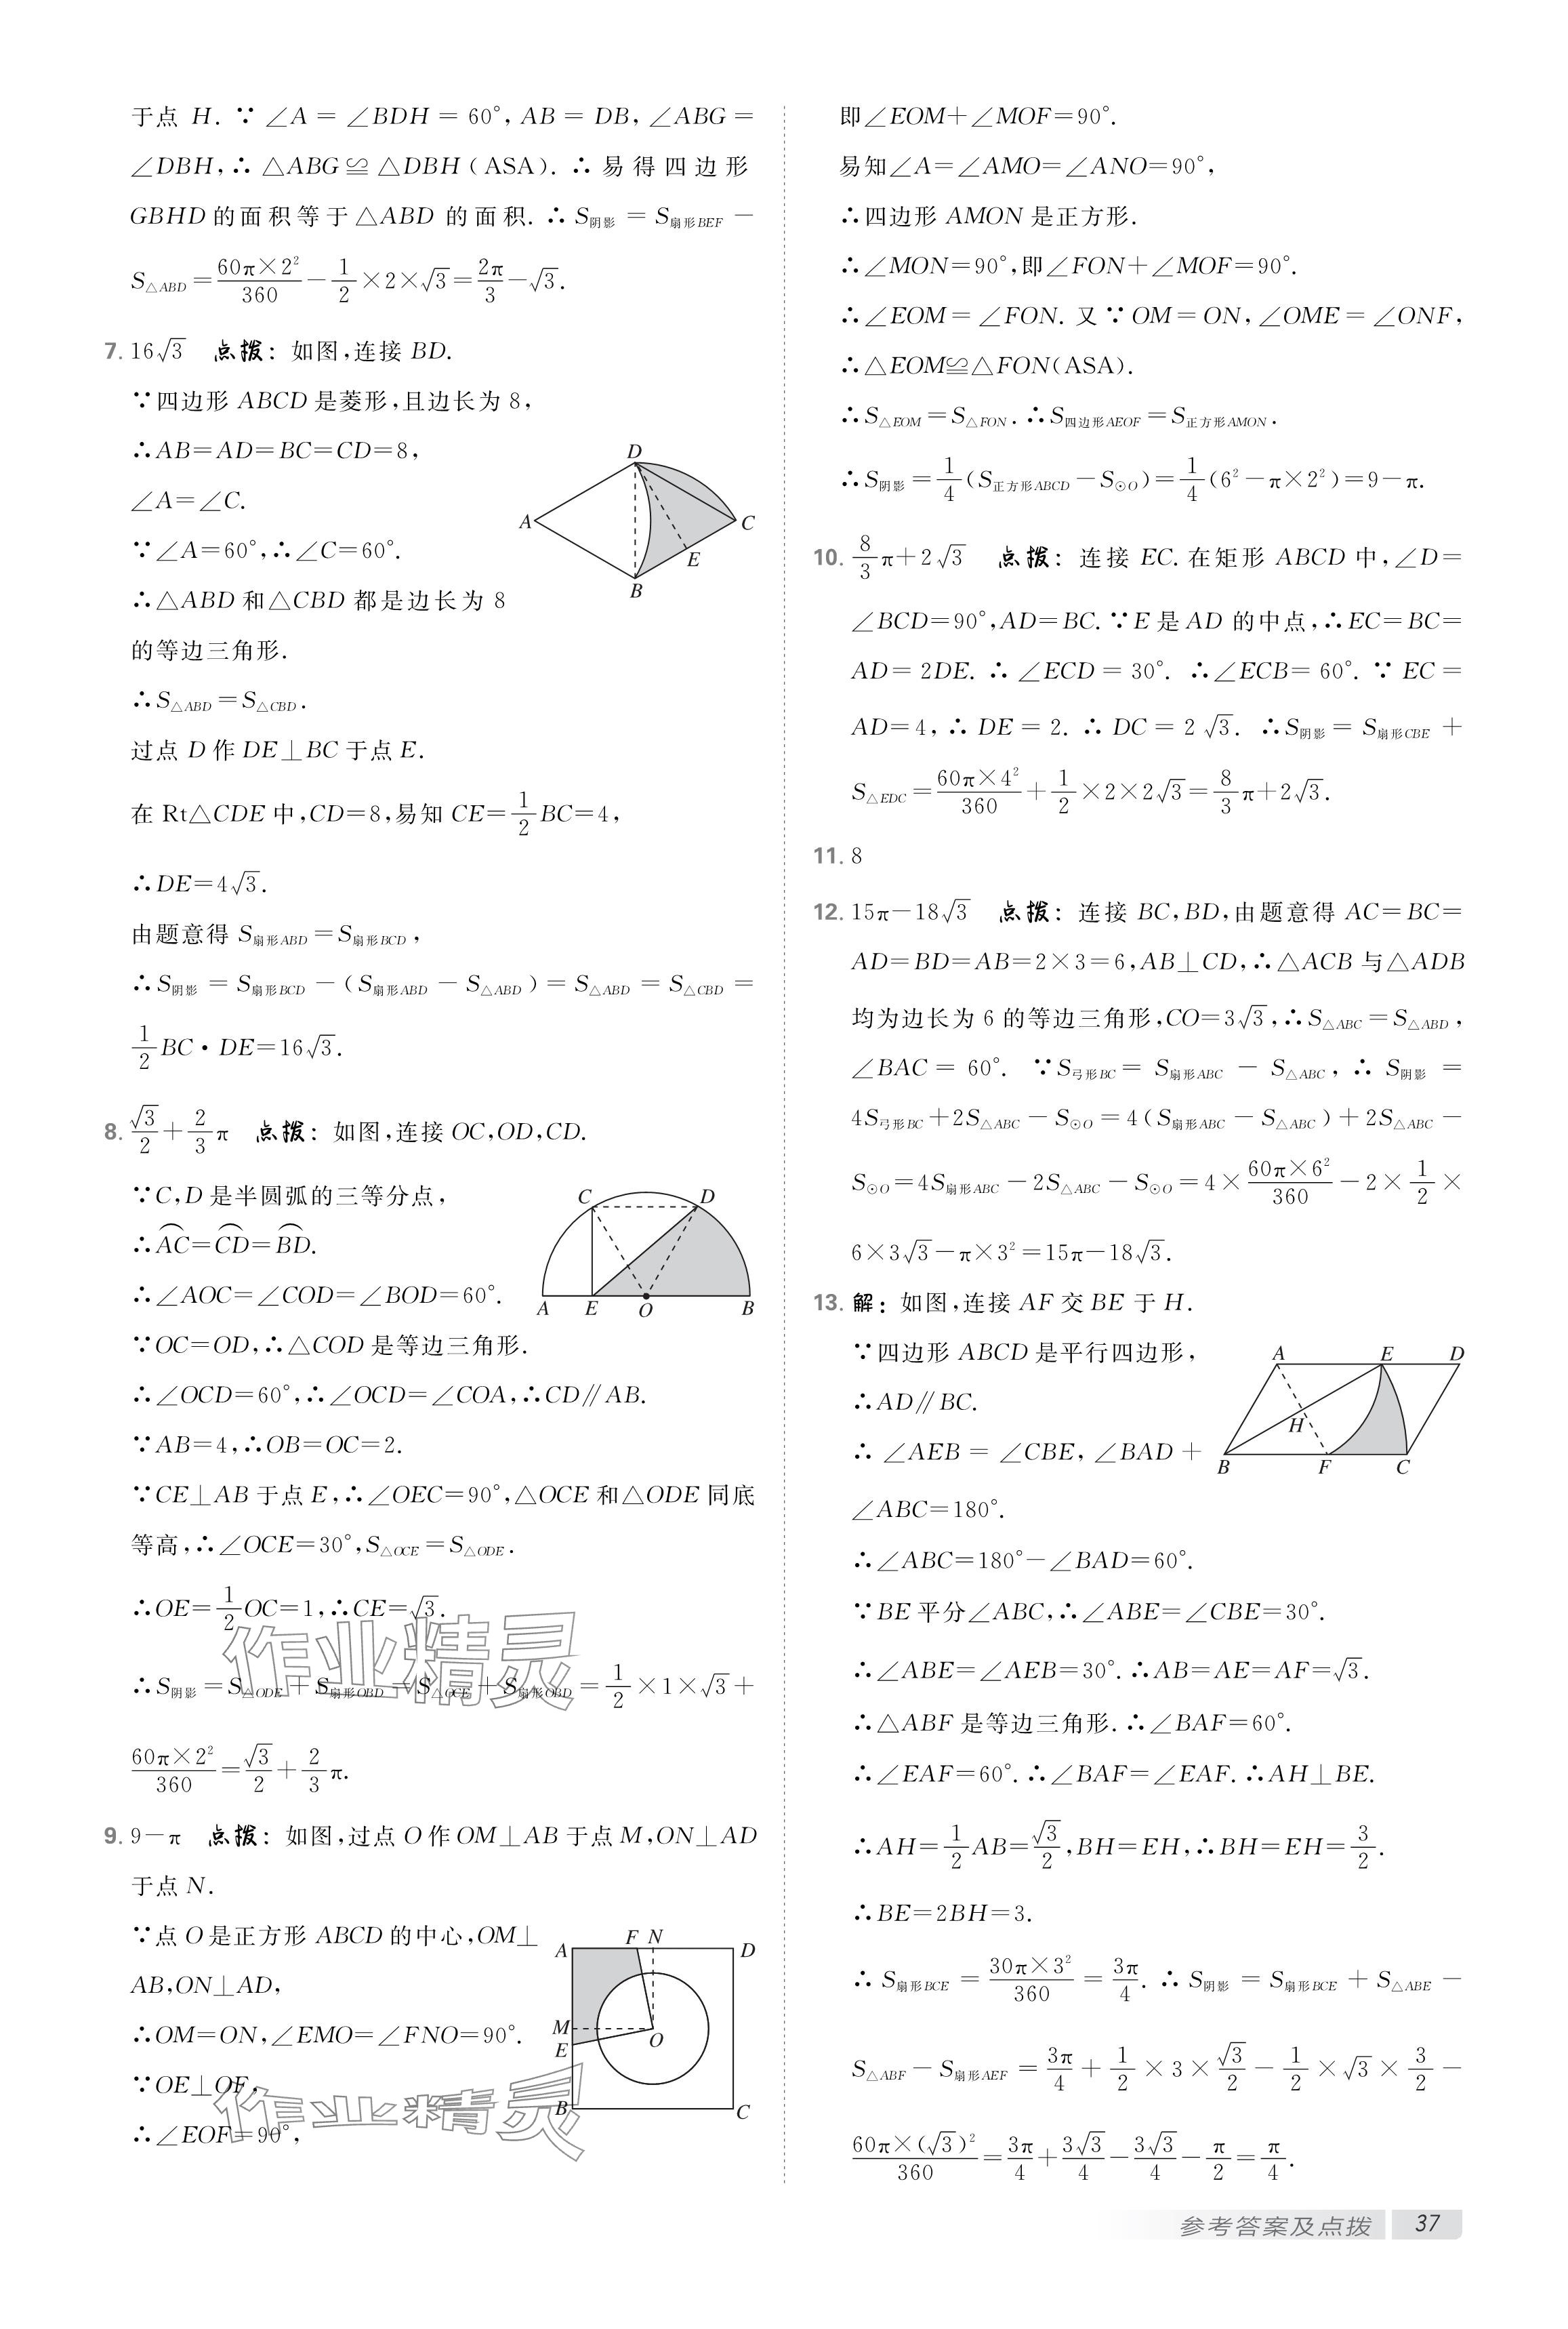 于点 H. ∵ ∠A = ∠BDH = 60°, AB = DB, ∠ABG =
∠DBH, ∴ △ABG ≌ △DBH (ASA). ∴ 易得四边形
GBHD 的面积等于△ABD 的面积. ∴ S阴影 = S扇形BEF −
S△ABD = 60π×2²/360 − 1/2 ×2×√3 = 2π/3 − √3.
7. 16√3 点拨: 如图,连接 BD.
∵四边形 ABCD 是菱形,且边长为 8,
∴AB=AD=BC=CD=8,
∠A=∠C.
∵∠A=60°,∴∠C=60°.
∴△ABD 和△CBD 都是边长为 8
的等边三角形.
∴S△ABD=S△CBD.
过点 D 作 DE⊥BC 于点 E.
在 Rt△CDE 中,CD=8,易知 CE=1/2 BC=4,
∴DE=4√3.
由题意得 S扇形ABD=S扇形BCD,
∴S阴影 = S扇形BCD − (S扇形ABD − S△ABD) = S△ABD = S△CBD =
1/2 BC·DE=16√3.
A
D
C
E
B
8. √3/2 + 2/3 π 点拨: 如图,连接 OC,OD,CD.
∵C,D 是半圆弧的三等分点,
∴A͡C=C͡D=B͡D.
∴∠AOC=∠COD=∠BOD=60°.
∵OC=OD,∴△COD 是等边三角形.
∴∠OCD=60°,∴∠OCD=∠COA,∴CD∥AB.
∵AB=4,∴OB=OC=2.
∵CE⊥AB 于点 E,∴∠OEC=90°,△OCE 和△ODE 同底
等高,∴∠OCE=30°,S△OCE=S△ODE.
∴OE=1/2 OC=1,∴CE=√3.
∴S阴影=S△ODE+S扇形OBD=S△OCE+S扇形OBD=1/2 ×1×√3+
60π×2²/360 = √3/2 + 2/3 π.
C D
A E O B
作业精灵
9. 9−π 点拨: 如图,过点 O 作 OM⊥AB 于点 M,ON⊥AD
于点 N.
∵点 O 是正方形 ABCD 的中心,OM⊥
AB,ON⊥AD,
∴OM=ON,∠EMO=∠FNO=90°.
∵OE⊥OF,
∴∠EOF=90°,
A F N D
M O
E
B C
作业精灵
即∠EOM+∠MOF=90°.
易知∠A=∠AMO=∠ANO=90°,
∴四边形 AMON 是正方形.
∴∠MON=90°,即∠FON+∠MOF=90°.
∴∠EOM=∠FON. 又∵OM=ON,∠OME=∠ONF,
∴△EOM≌△FON(ASA).
∴S△EOM=S△FON. ∴S四边形AEOF=S正方形AMON.
∴S阴影=1/4 (S正方形ABCD−S⊙O)=1/4 (6²−π×2²)=9−π.
10. 8/3 π+2√3 点拨: 连接 EC. 在矩形 ABCD 中,∠D=
∠BCD=90°,AD=BC. ∵E 是 AD 的中点,∴EC=BC=
AD=2DE. ∴∠ECD=30°. ∴∠ECB=60°. ∵EC=
AD=4,∴DE=2. ∴DC=2√3. ∴S阴影=S扇形CBE+
S△EDC=60π×4²/360 + 1/2 ×2×2√3=8/3 π+2√3.
11. 8
12. 15π−18√3 点拨: 连接 BC,BD,由题意得 AC=BC=
AD=BD=AB=2×3=6,AB⊥CD,∴△ACB 与△ADB
均为边长为 6 的等边三角形,CO=3√3,∴S△ABC=S△ABD,
∠BAC=60°. ∵S弓形BC=S扇形ABC−S△ABC,∴S阴影=
4S弓形BC+2S△ABC−S⊙O=4(S扇形ABC−S△ABC)+2S△ABC−
S⊙O=4S扇形ABC−2S△ABC−S⊙O=4×60π×6²/360−2×1/2×
6×3√3−π×3²=15π−18√3.
13. 解: 如图,连接 AF 交 BE 于 H.
∵四边形 ABCD 是平行四边形,
∴AD∥BC.
∴∠AEB=∠CBE,∠BAD+
∠ABC=180°.
∴∠ABC=180°−∠BAD=60°.
∵BE 平分∠ABC,∴∠ABE=∠CBE=30°.
∴∠ABE=∠AEB=30°. ∴AB=AE=AF=√3.
∴△ABF 是等边三角形. ∴∠BAF=60°.
∴∠EAF=60°. ∴∠BAF=∠EAF. ∴AH⊥BE.
∴AH=1/2 AB=√3/2,BH=EH,∴BH=EH=3/2.
∴BE=2BH=3.
∴S扇形BCE=30π×3²/360=3π/4. ∴S阴影=S扇形BCE+S△ABE−
S△ABF−S扇形AEF=3π/4+1/2×3×√3/2−1/2×√3×3/2−
60π×(√3)²/360=3π/4+3√3/4−3√3/4−π/2=π/4.
A E D
H
B F C
参考答案及点拨 37